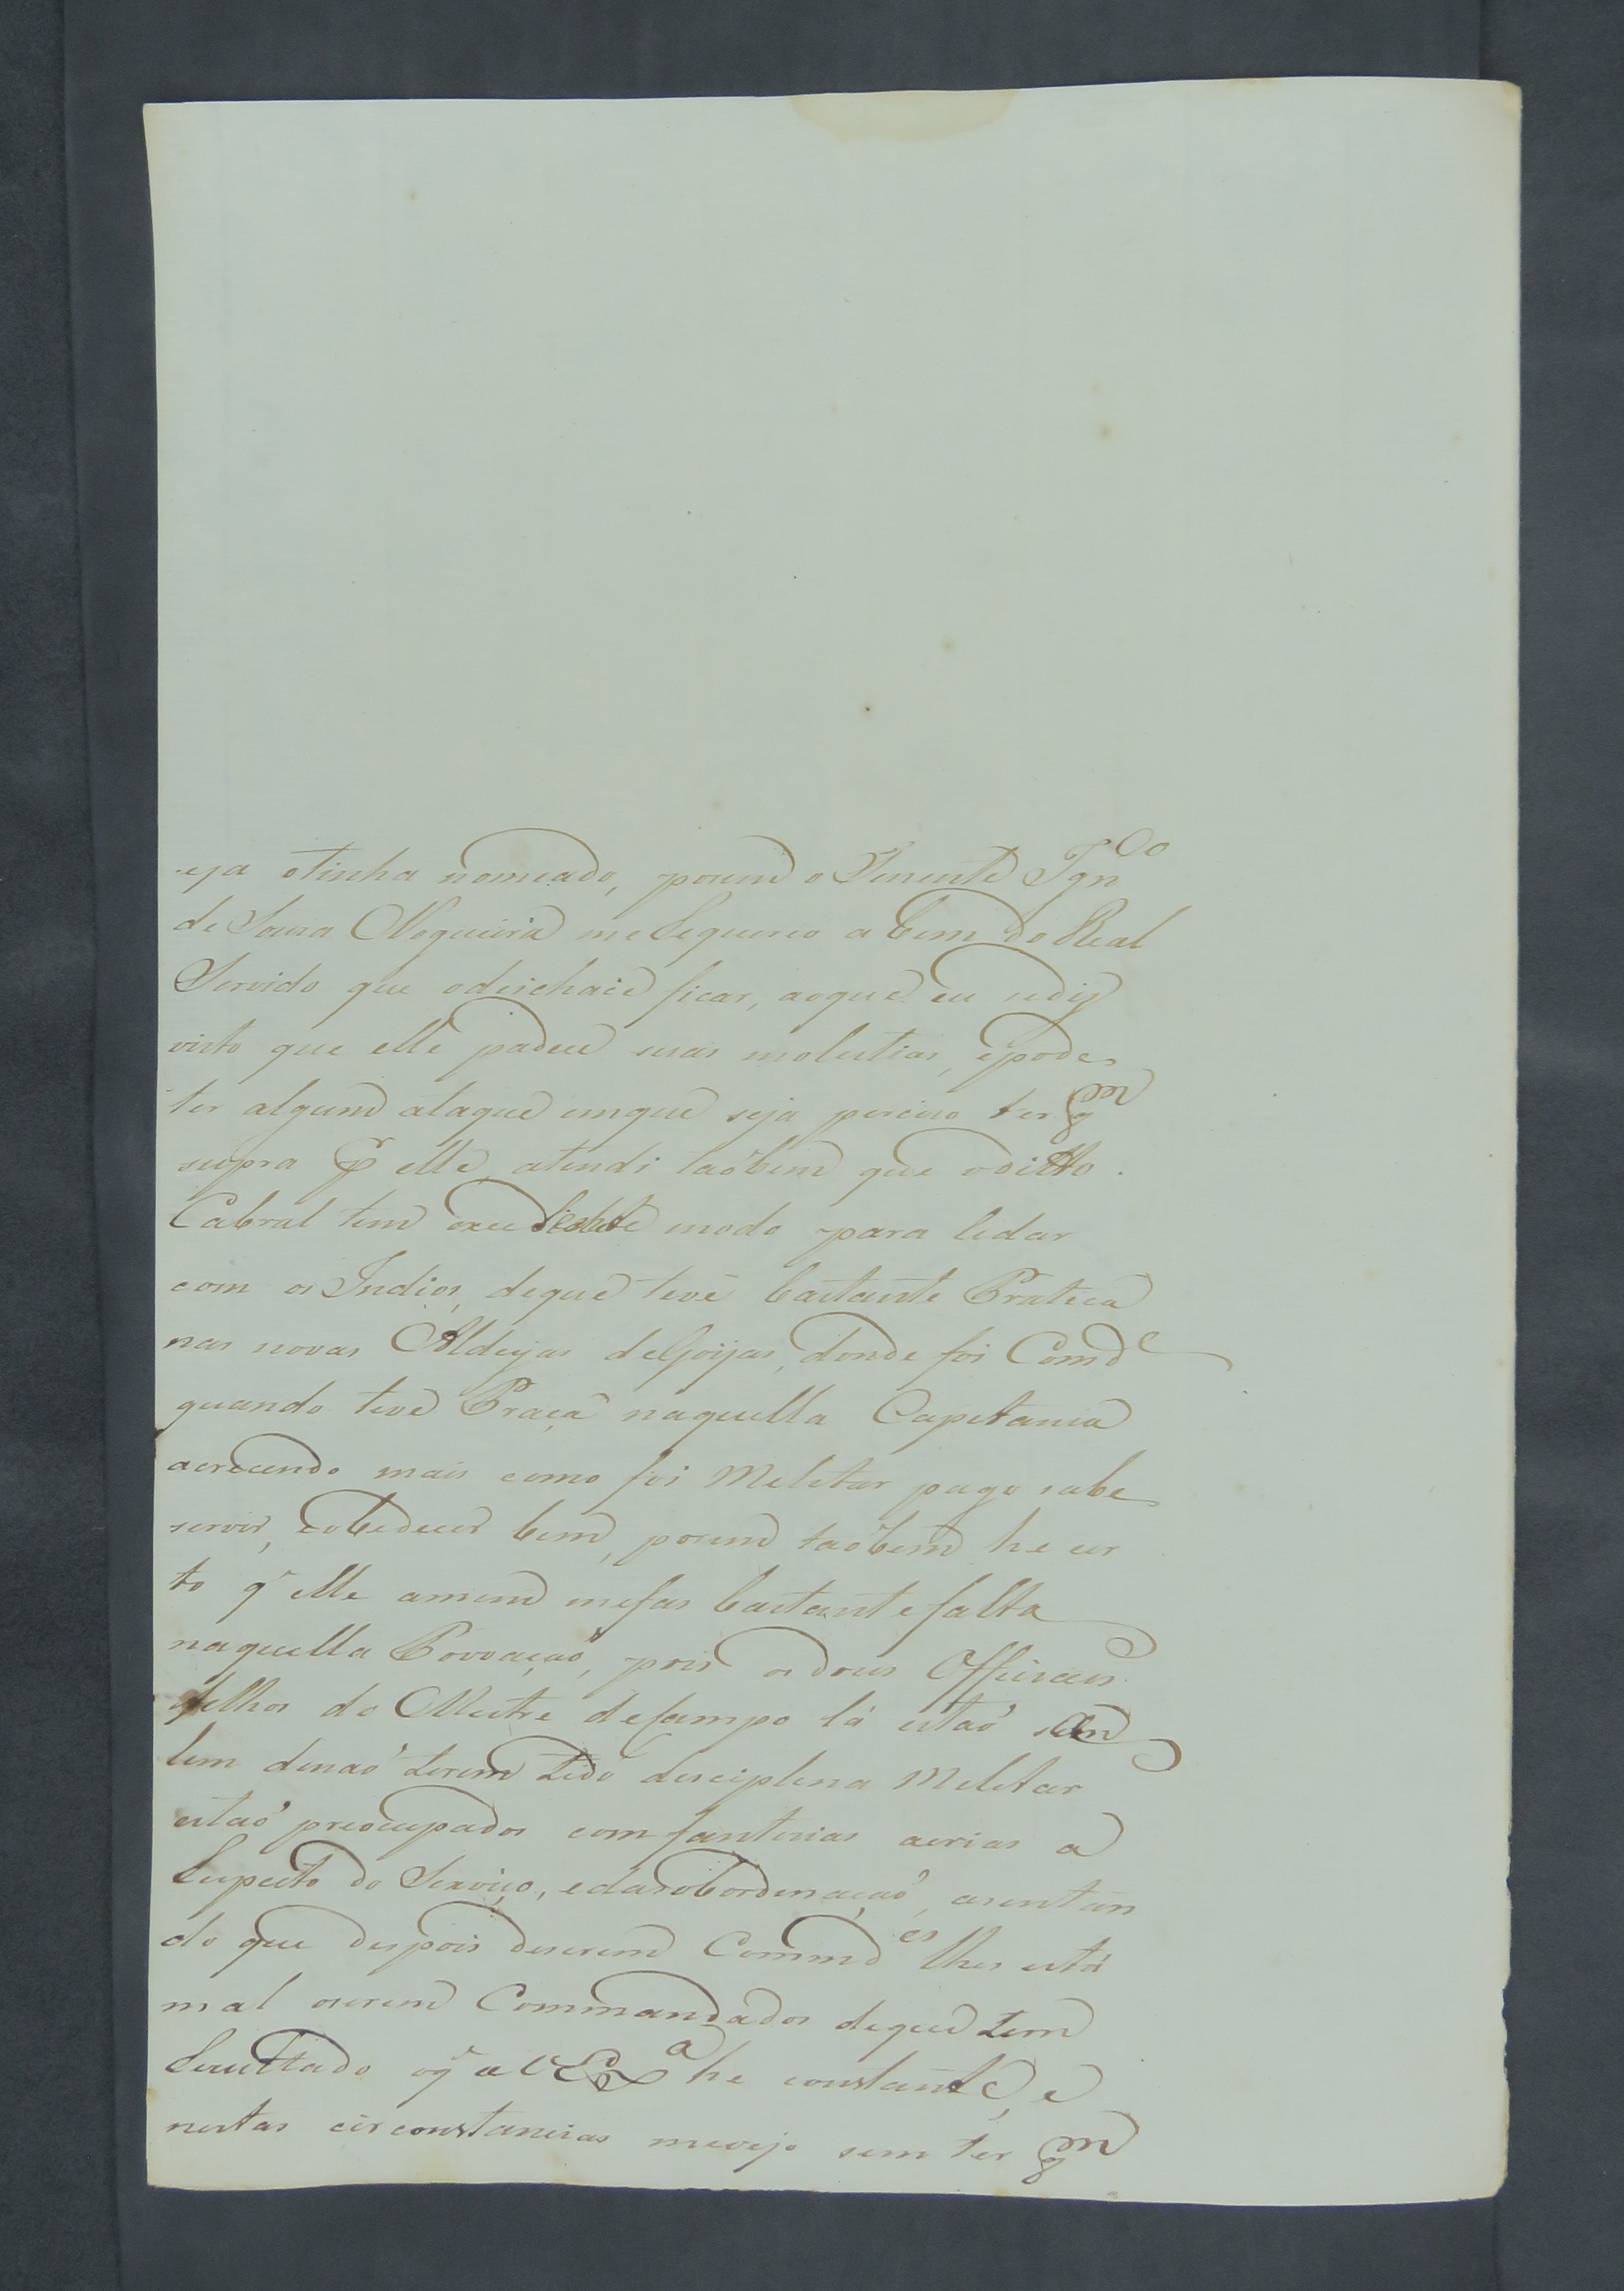 eja otinha nomeado, porem o Tenente Ign.co
de Souza Nogueira me Requereo a bem do Real
Servido que odeichace ficar, aoque eu sedij
visto que elle padece suas molestias, epode
ter algum ataque emque seja perciso ter qm
supra pr elle, atendi taõbem que oditto
Cabral tem excediente modo para lidar
com os Indios, deque teve bastante Prateca
nas novas Aldeyas deGoijas, donde foi Comde
quando teve Praça naquella Capetania
acrecendo mais como foi Meletar pago sabe
servir, eobedecer bem, porem taõbem he cer
to q' elle amim mefas bastante falta
naquella Povoaçaõ, pois os dous Officiaes
felhos do Mestre deCampo lá estaõ, an
lem denaõ terem tido desciplena Meletar
estaõ preocupados com fantesias aerias a
Respeito do Serviço, edasobordenaçaõ, asentan
do que despois deserem Commdes lhes está
mal oserem Commandados deque tem
Resultado oq' a V. Exa he constante, e
nestas circonstancias mevejo sem ter qm